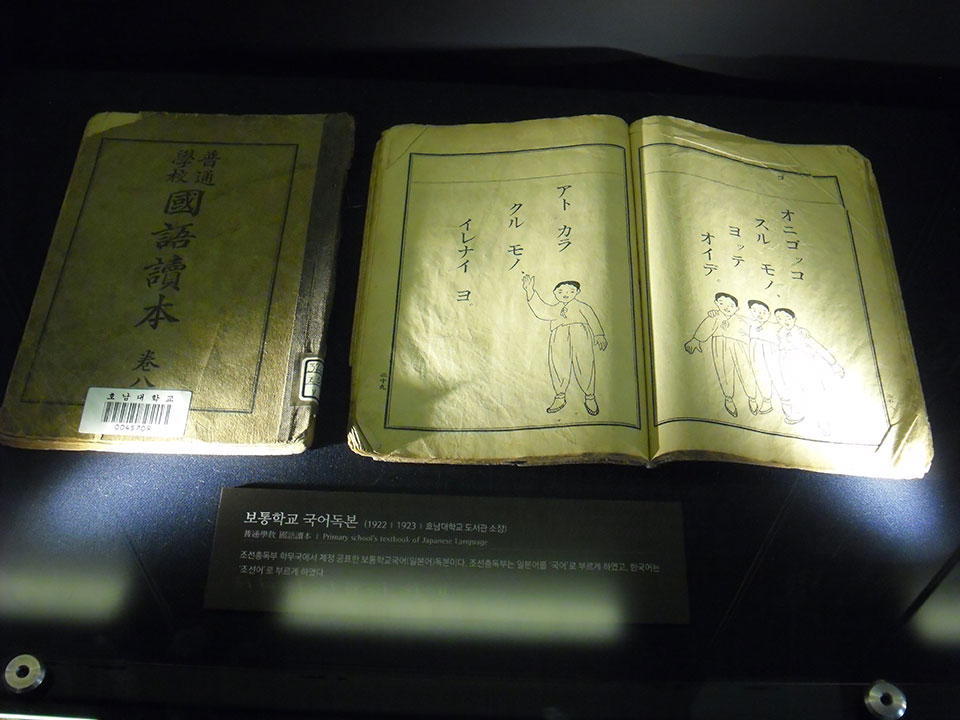 普通
學校
國語讀本
卷八
호남대학교
0045709
ゴ
オニゴッコ
スル モノ、
ヨッテ
オイデ。
アト カラ
クル モノ、
イレナイ ヨ。
二十九
보통학교 국어독본 (1922 | 1923 | 호남대학교 도서관 소장)
普通學校 國語讀本 | Primary school's textbook of Japanese Language
조선총독부 학무국에서 제정 공표한 보통학교국어(일본어)독본이다. 조선총독부는 일본어를 '국어'로 부르게 하였고, 한국어는
'조선어'로 부르게 하였다